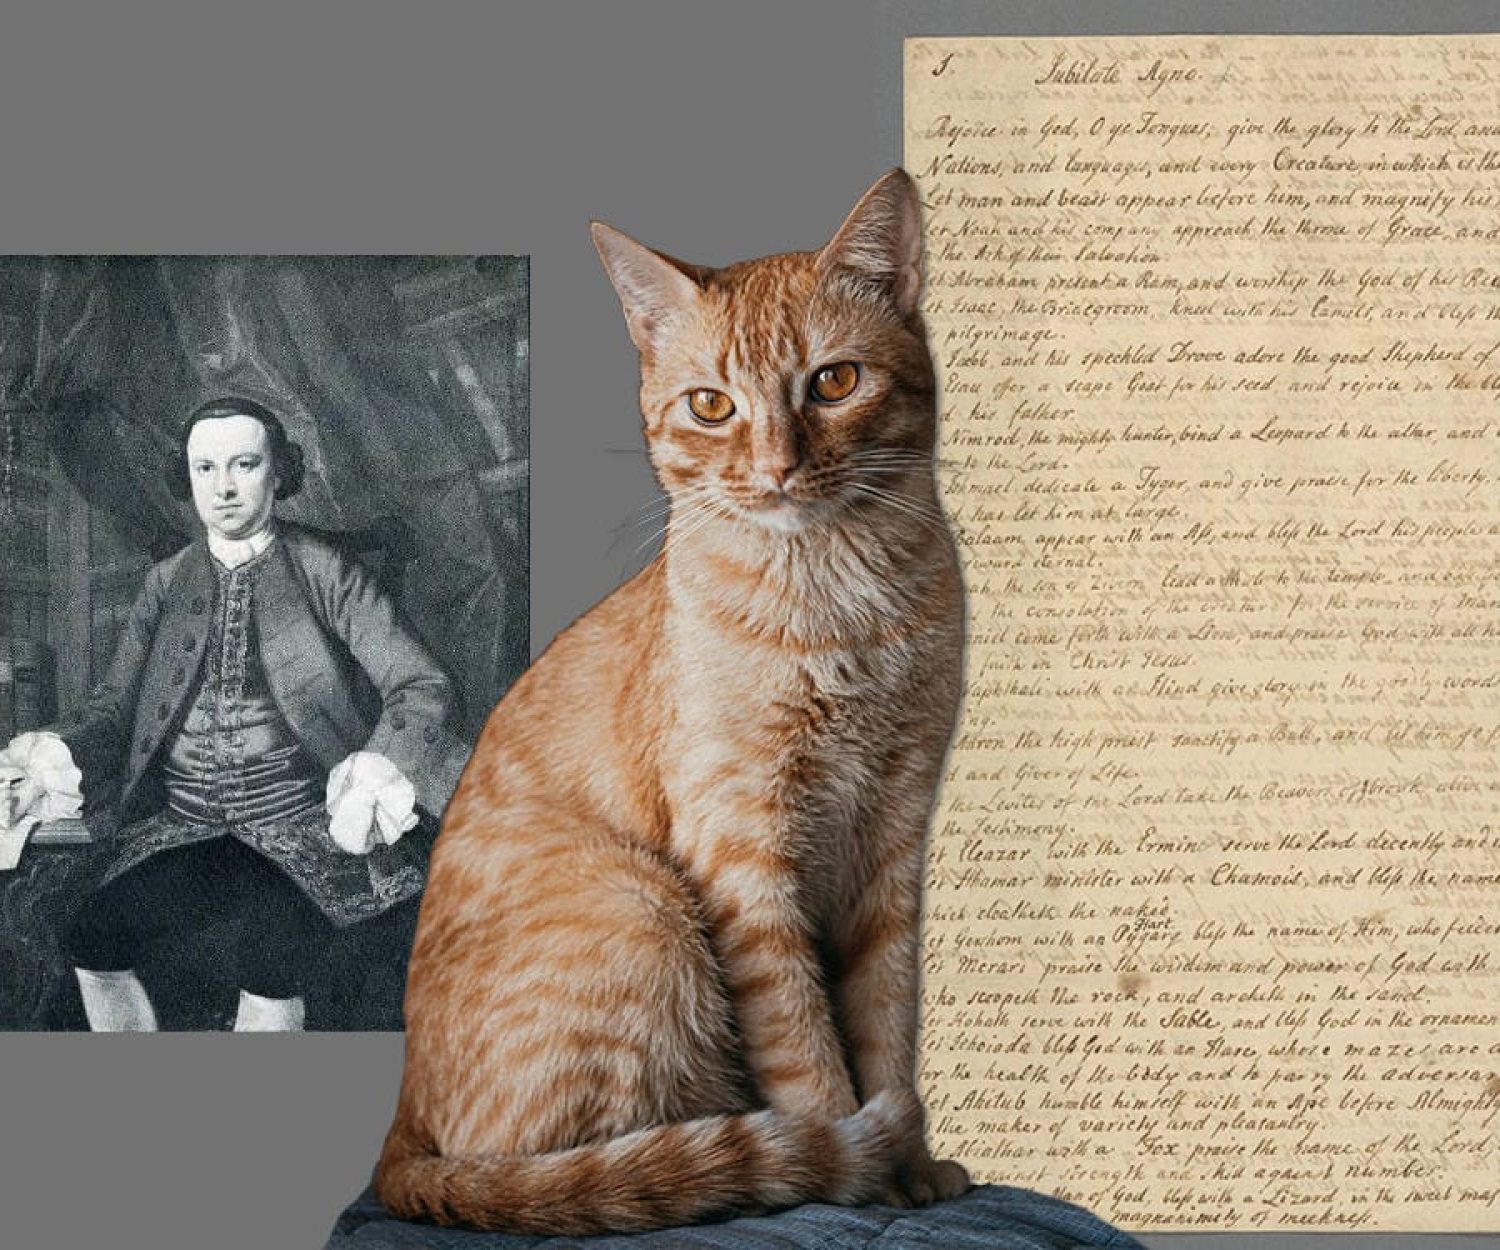 1.
Jubilate Agno.
Rejoice in God, O ye Tongues; give the glory to the Lord, and
Nations, and languages, and every Creature, in which is the
Let man and beast appear before him, and magnify his
Let Noah and his company approach the throne of Grace, and
the Ark of their Salvation.
Abraham present a Ram, and worship the God of his
Isaac, the Bridegroom, kneel with his Camels, and bless
pilgrimage.
Jacob and his speckled Drove adore the good Shepherd of
Esau offer a scape Goat for his seed and rejoice in the
his father.
Nimrod, the mighty hunter, bind a Leopard to the altar, and
to the Lord.
Ishmael dedicate a Tyger, and give praise for the liberty,
has let him at large.
Balaam appear with an Ass, and bless the Lord his people
reward eternal.
the son of Zibeon lead a Mule to the temple, and
the consolation of the creature for the service of Man
come forth with a Lion, and praise God with all
faith in Christ Jesus.
Naphthali with a Hind give glory in the goodly word
Aaron the high priest sanctify a Bull, and let him go
and Giver of Life.
the Levites of the Lord take the Beavers of brook alive
the Testimony.
Eleazar with the Ermine serve the Lord decently and
Let Ithamar minister with a Chamois, and bless the name
which cloatheth the naked.
Hart
Let Gershom with an Pygarg bless the name of Him, who
Let Merari praise the wisdom and power of God with
who scoopeth the rock, and archeth in the sand.
Let Kohath serve with the Sable, and bless God in the ornamen
Let Jehoiada bless God with an Hare, whose mazes are
for the health of the body and to parry the adversar
Let Ahitub humble himself with an Ape before Almighty
the maker of variety and pleasantry.
Abiathar with a Fox praise the name of the Lord,
against strength and skid against number.
Man of God, bless with a Lizard, in the sweet
magnanimity of meekness.